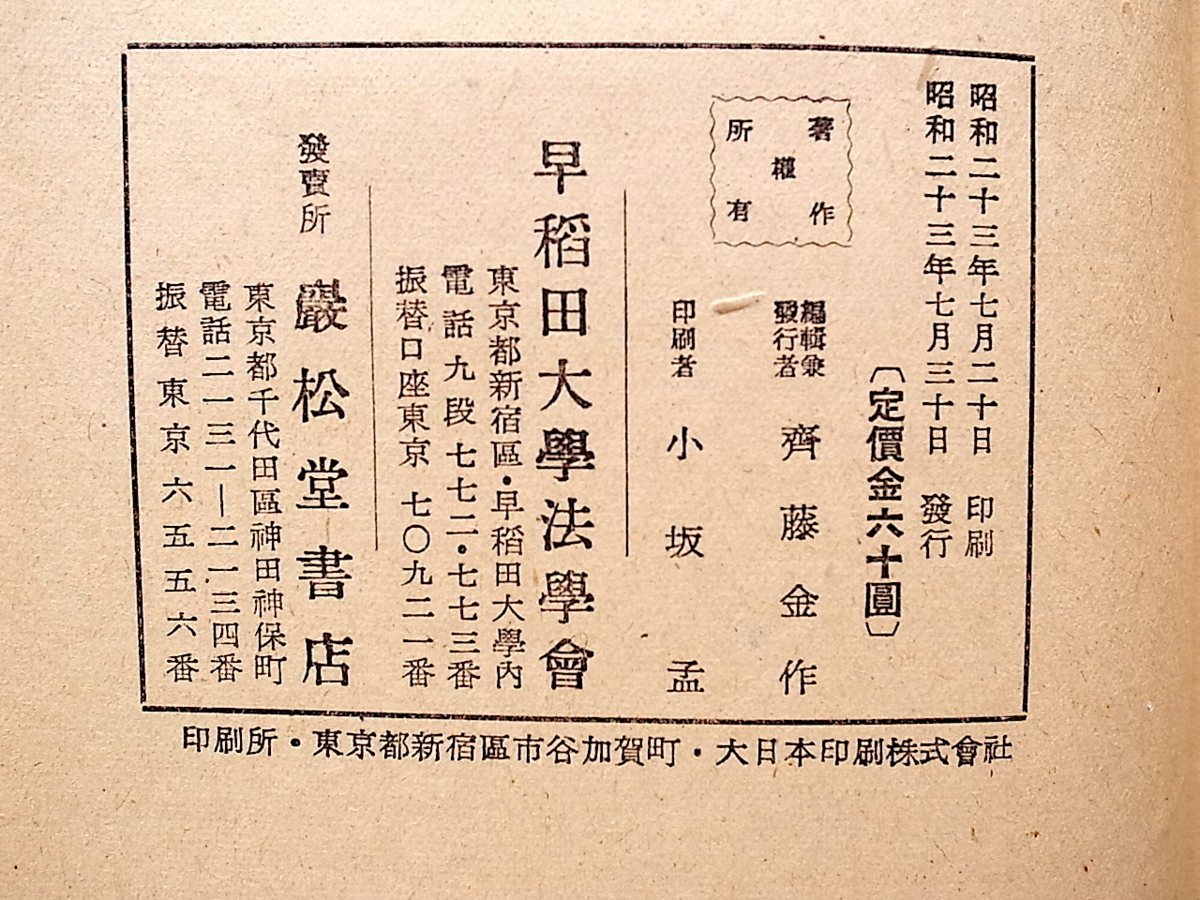 昭和二十三年七月二十日　印刷
昭和二十三年七月三十日　發行
〔定價金六十圓〕
著作權所有
編輯兼發行者　齊藤金作
印刷者　小坂孟
早稻田大學法學會
東京都新宿區・早稻田大學內
電話九段七七二・七七三番
振替口座東京七〇九二一番
發賣所　巖松堂書店
東京都千代田區神田神保町
電話二一三一—二一三四番
振替東京六五五六番
印刷所・東京都新宿區市谷加賀町・大日本印刷株式會社